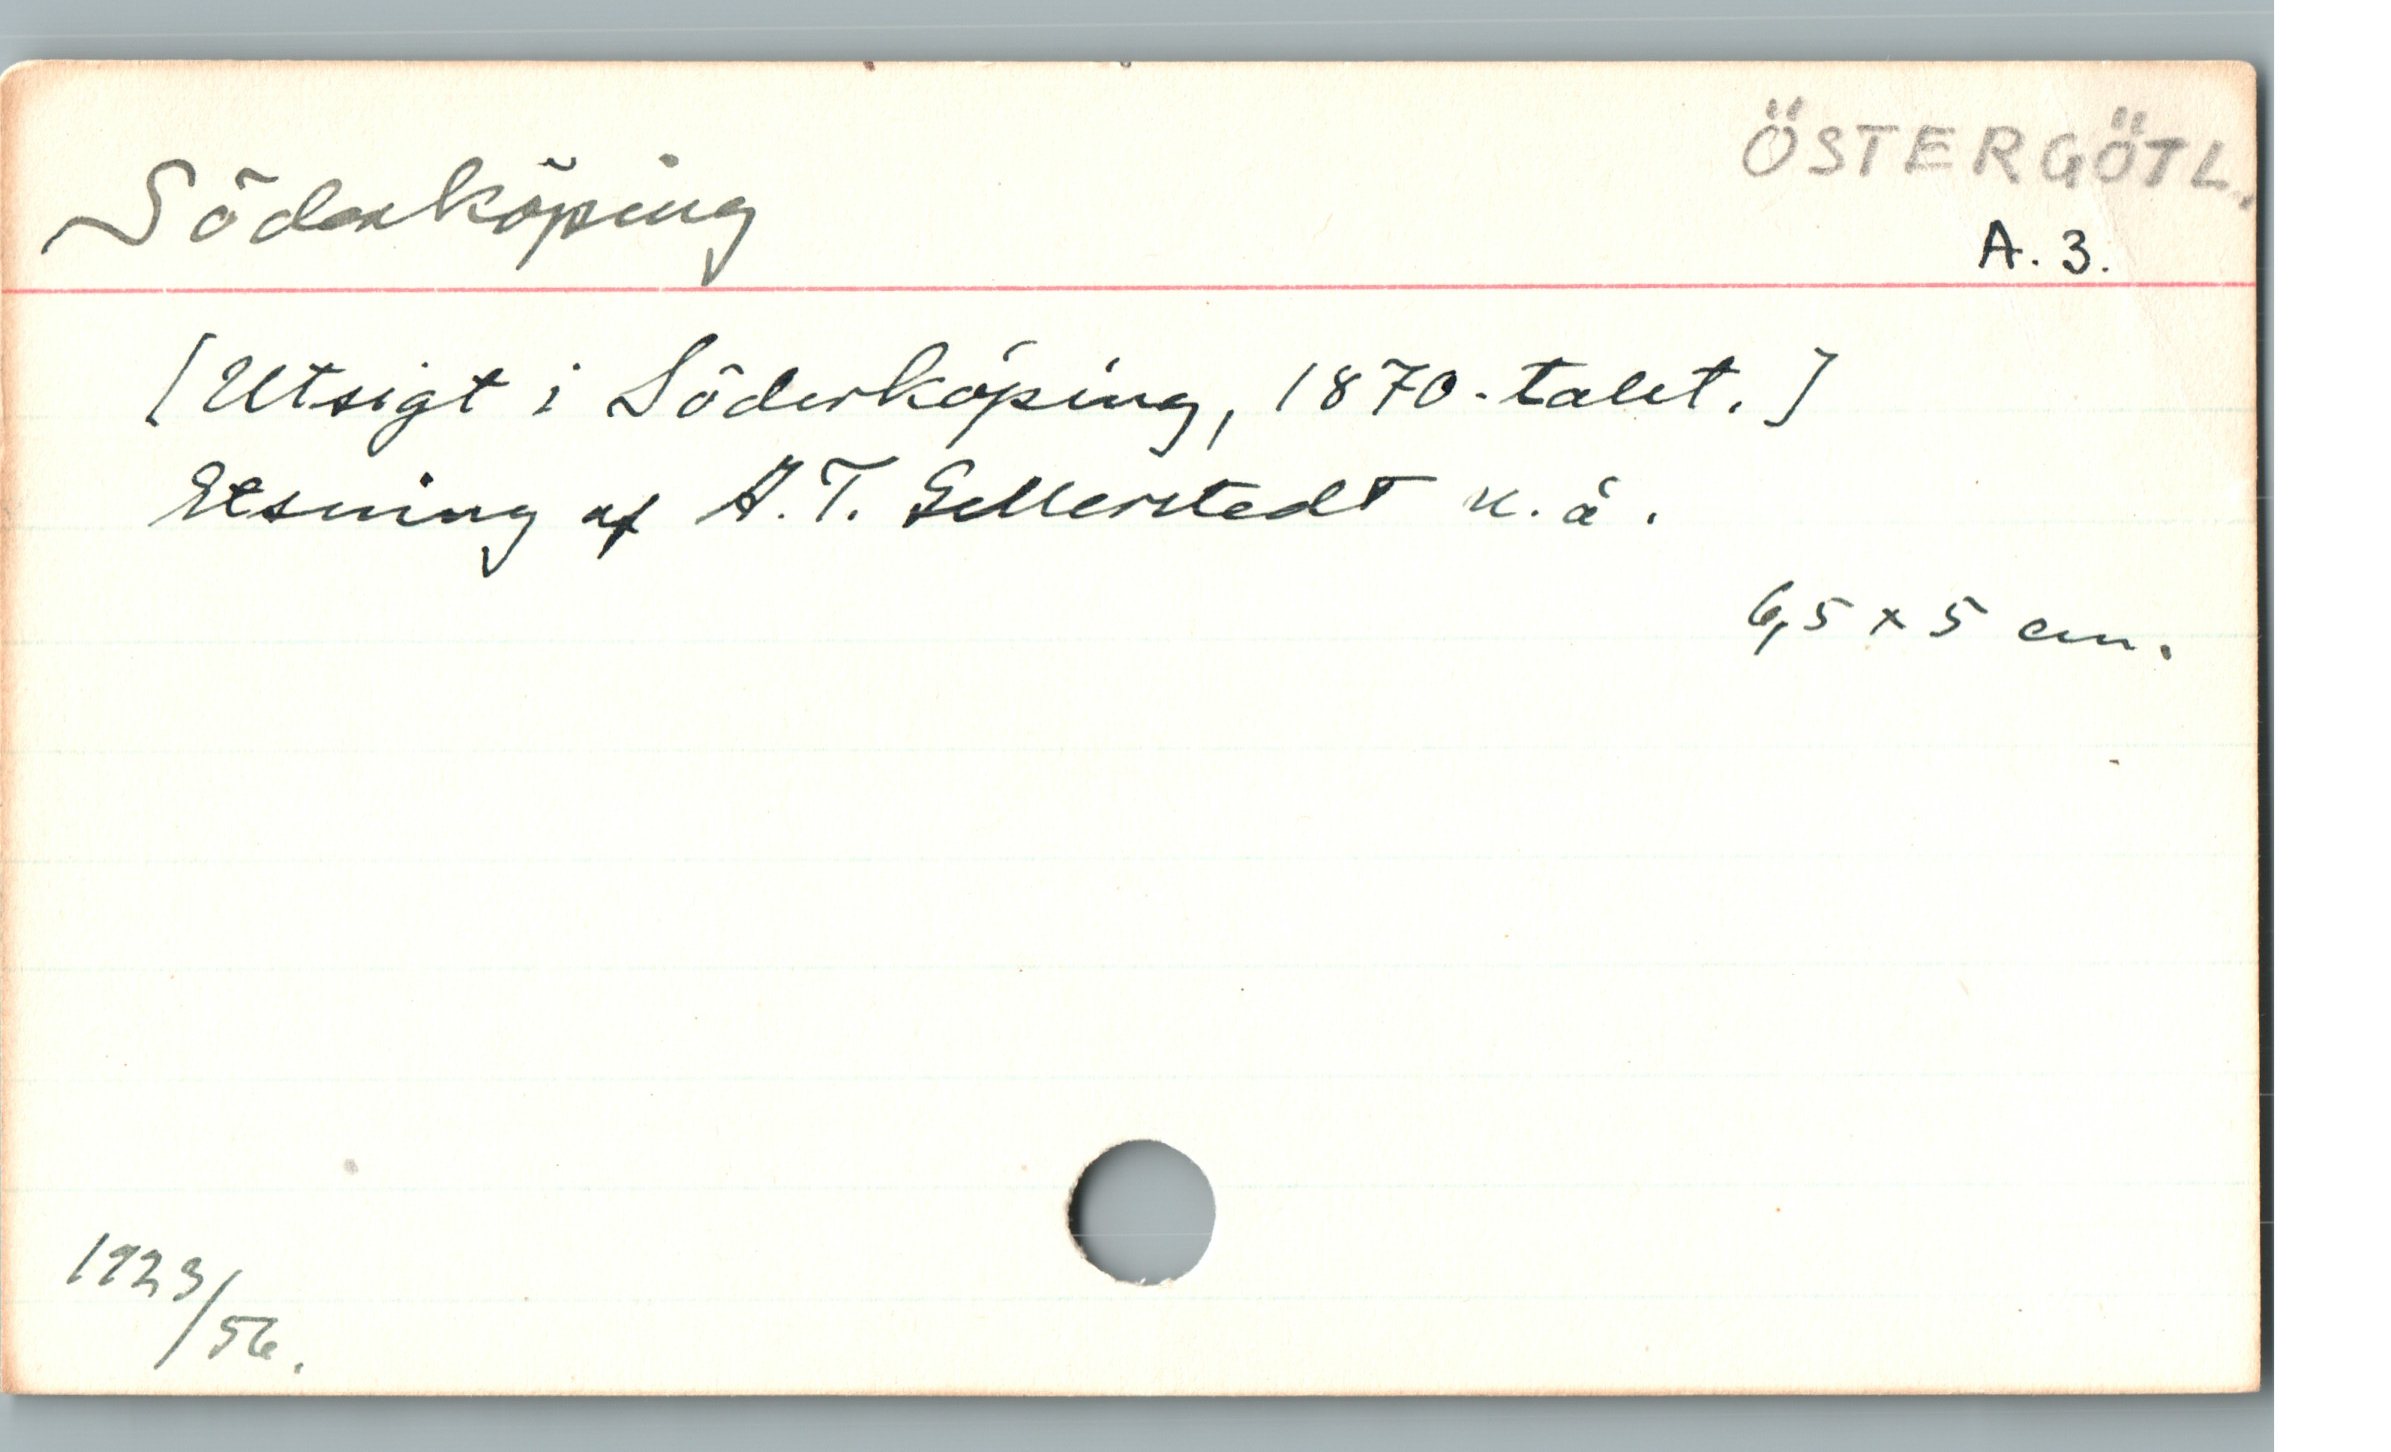 Söderköping
ÖSTERGÖTL.
A. 3.
[Utsigt i Söderköping, 1870-talet.]
Etsning af A. T. Gellerstedt u. å.
6,5 x 5 cm.
1923/56.